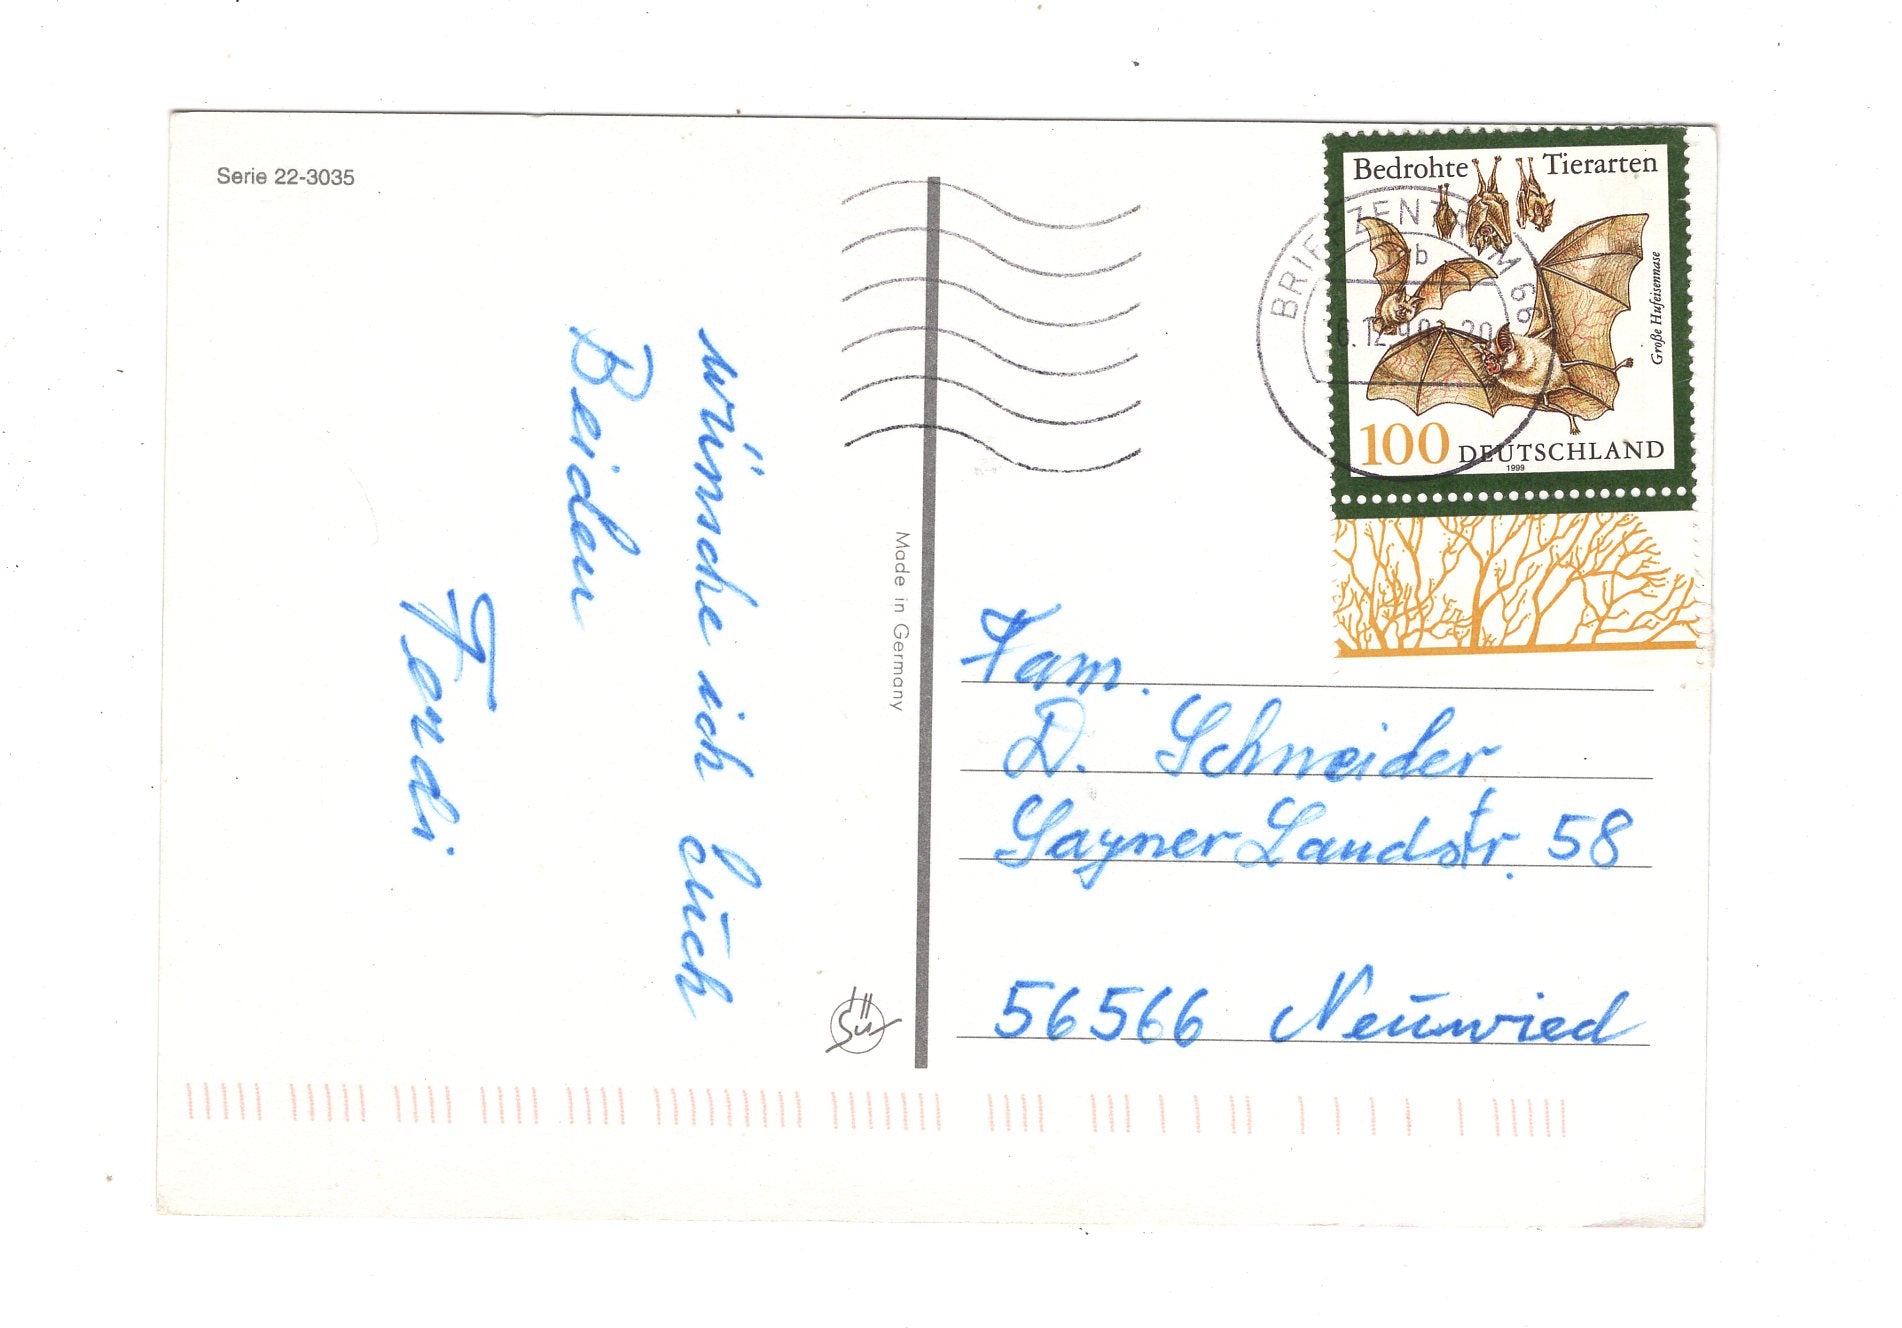 Serie 22-3035
wünsche ich Euch
Beiden
Made in Germany
Bedrohte Tierarten
Große Hufeisennase
100 DEUTSCHLAND
1999
BRIEFZENTRUM 66
mb
Fam.
D. Schneider
Sayner Landstr. 58
56566 Neuwied